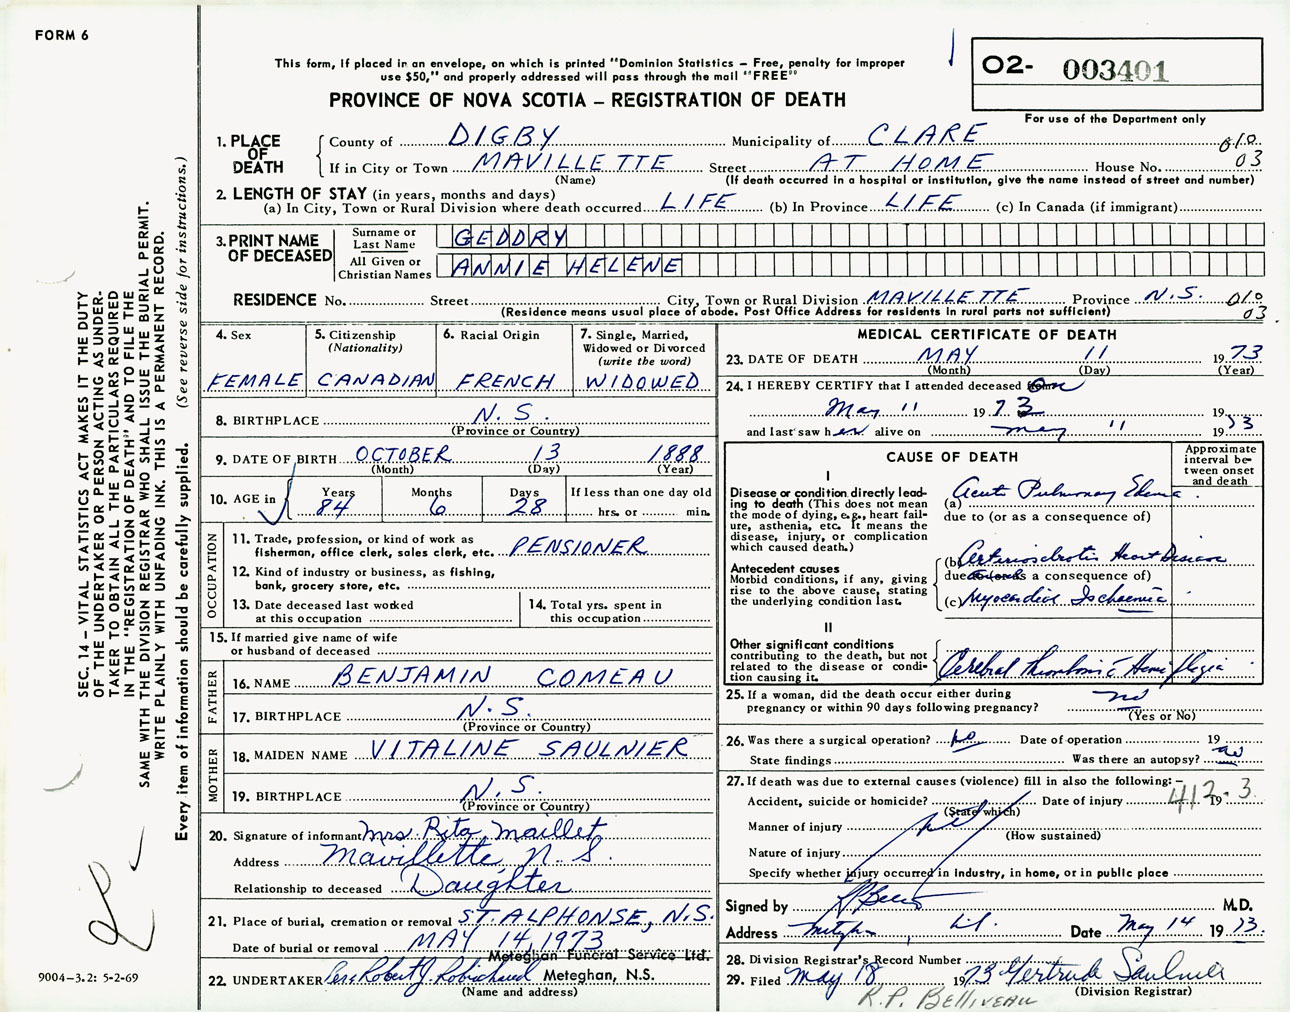 FORM 6
This form, if placed in an envelope, on which is printed "Dominion Statistics – Free, penalty for improper
use $50," and properly addressed will pass through the mail "FREE"
PROVINCE OF NOVA SCOTIA – REGISTRATION OF DEATH
O2- 003401
For use of the Department only
1. PLACE OF DEATH
County of DIGBY Municipality of CLARE 010
If in City or Town MAVILLETTE Street AT HOME House No. 03
(Name) (If death occurred in a hospital or institution, give the name instead of street and number)
2. LENGTH OF STAY (in years, months and days)
(a) In City, Town or Rural Division where death occurred LIFE (b) In Province LIFE (c) In Canada (if immigrant)
3. PRINT NAME OF DECEASED
Surname or Last Name GEDDRY
All Given or Christian Names ANNIE HELENE
RESIDENCE No. Street City, Town or Rural Division MAVILLETTE Province N.S. 010
(Residence means usual place of abode. Post Office Address for residents in rural parts not sufficient) 03
4. Sex
FEMALE
5. Citizenship
(Nationality)
CANADIAN
6. Racial Origin
FRENCH
7. Single, Married,
Widowed or Divorced
(write the word)
WIDOWED
8. BIRTHPLACE N.S.
(Province or Country)
9. DATE OF BIRTH OCTOBER 13 1888
(Month) (Day) (Year)
10. AGE in
Years Months Days If less than one day old
84 6 28 hrs. or min.
OCCUPATION
11. Trade, profession, or kind of work as
fisherman, office clerk, sales clerk, etc. PENSIONER
12. Kind of industry or business, as fishing,
bank, grocery store, etc.
13. Date deceased last worked
at this occupation
14. Total yrs. spent in
this occupation
15. If married give name of wife
or husband of deceased
FATHER
16. NAME BENJAMIN COMEAU
17. BIRTHPLACE N.S.
(Province or Country)
MOTHER
18. MAIDEN NAME VITALINE SAULNIER
19. BIRTHPLACE N.S.
(Province or Country)
20. Signature of informant Mrs. Rita Maillet
Address Mavillette N.S.
Relationship to deceased Daughter
21. Place of burial, cremation or removal ST. ALPHONSE, N.S.
Date of burial or removal MAY 14, 1973
Meteghan Funeral Service Ltd.
22. UNDERTAKER Per Robert J. Robichaud Meteghan, N.S.
(Name and address)
MEDICAL CERTIFICATE OF DEATH
23. DATE OF DEATH MAY 11 1973
(Month) (Day) (Year)
24. I HEREBY CERTIFY that I attended deceased on
May 11 1973 19
and last saw her alive on May 11 1973
CAUSE OF DEATH
Approximate
interval be-
tween onset
and death
I
Disease or condition directly lead-
ing to death (This does not mean
the mode of dying, e.g., heart fail-
ure, asthenia, etc. It means the
disease, injury, or complication
which caused death.)
(a) Acute Pulmonary Edema
due to (or as a consequence of)
Antecedent causes
Morbid conditions, if any, giving
rise to the above cause, stating
the underlying condition last.
(b) Arteriosclerotic Heart Disease
due to (or as a consequence of)
(c) Myocardial Ischaemia
II
Other significant conditions
contributing to the death, but not
related to the disease or condi-
tion causing it.
Cerebral Thrombosis c̄ Hemiplegia
25. If a woman, did the death occur either during
pregnancy or within 90 days following pregnancy? no
(Yes or No)
26. Was there a surgical operation? no Date of operation 19
State findings Was there an autopsy? no
27. If death was due to external causes (violence) fill in also the following: –
Accident, suicide or homicide? Date of injury 19
412-3
(State which)
Manner of injury
(How sustained)
Nature of injury
Specify whether injury occurred in industry, in home, or in public place
Signed by M.D.
Address Date May 14 1973.
28. Division Registrar's Record Number
29. Filed May 18 1973 Gertrude Saulnier
(Division Registrar)
R.P. BELLIVEAU
SEC. 14 – VITAL STATISTICS ACT MAKES IT THE DUTY
OF THE UNDERTAKER OR PERSON ACTING AS UNDER-
TAKER TO OBTAIN ALL THE PARTICULARS REQUIRED
IN THE "REGISTRATION OF DEATH" AND TO FILE THE
SAME WITH THE DIVISION REGISTRAR WHO SHALL ISSUE THE BURIAL PERMIT.
WRITE PLAINLY WITH UNFADING INK. THIS IS A PERMANENT RECORD.
Every item of information should be carefully supplied. (See reverse side for instructions.)
9004–3.2: 5-2-69